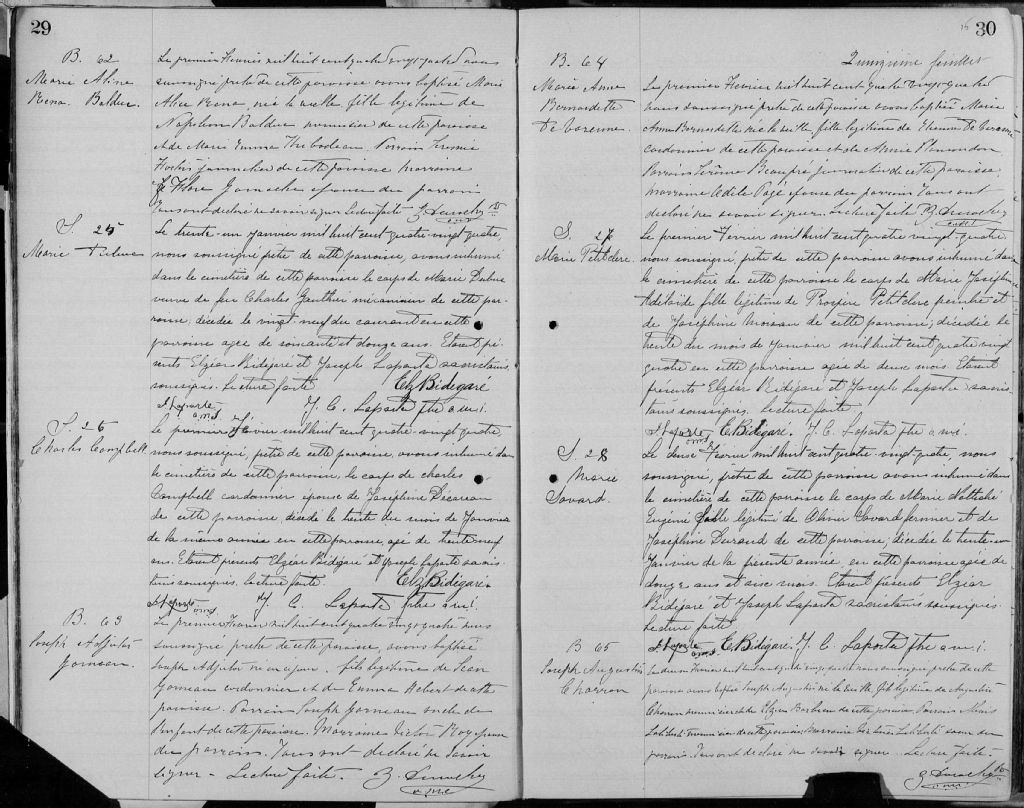 29
B. 62
Marie Aline
Rena Balduc
Le premier Fevrier mil huit cent quatre vingt quatre nous
soussigné prêtre de cette paroisse avons baptisé Marie
Alice Rena, née la veille fille légitime de
Napoléon Balduc menuisier de cette paroisse
et de Marie Emma Thibodeau. Parrain
journalier de cette paroisse marraine
Flore Gamache épouse du parrain
Tous ont déclaré ne savoir signer Lecture faite
S. 25
Marie
Le trente-un Janvier mil huit cent quatre-vingt quatre,
nous soussigné prêtre de cette paroisse, avons inhumé
dans le cimetière de cette paroisse le corps de Marie
veuve de feu Charles Gauthier de cette pa-
roisse, décédée le vingt-neuf du courant en cette
paroisse agée de soixante et douze ans. Etaient pré-
sents Elzéar Bidégaré et Joseph Laporte sacristains
soussignés. Lecture faite
Elz Bidégaré
J. Laporte
J. C. Laporte ptre
S. 26
Charles Campbell
Le premier Février mil huit cent quatre-vingt quatre,
nous soussigné, prêtre de cette paroisse, avons inhumé dans
le cimetière de cette paroisse, le corps de Charles
Campbell cordonnier époux de Joséphine
de cette paroisse décédé le trente du mois de Janvier
de la même année en cette paroisse, agé de trente neuf
ans. Etaient présents Elzéar Bidégaré et Joseph Laporte sacris-
tains soussignés. Lecture faite.
Elz Bidégaré
J. Laporte
J. C. Laporte ptre
B. 63
Joseph Adjutor
Le premier Fevrier mil huit cent quatre vingt quatre nous
soussigné prêtre de cette paroisse, avons baptisé
Joseph Adjutor né ce jour, fils légitime de Jean
cordonnier et de Emma Hebert de cette
paroisse. Parrain Joseph oncle de
l'enfant de cette paroisse. Marraine Victoire Roy épouse
du parrain. Tous ont déclaré ne savoir
signer - Lecture faite.
30
feuillet
B. 64
Marie Anne
Bernadette
De Varenne
Le premier Fevrier mil huit cent quatre vingt quatre
nous soussigné prêtre de cette paroisse avons baptisé Marie
Anne Bernadette née la veille, fille légitime de Etienne De Varenne
cordonnier de cette paroisse et de
Parrain Jérôme Beaupré journalier de cette paroisse,
marraine Adèle Pagé épouse du parrain Tous ont
déclaré ne savoir signer. Lecture faite
S. 27
Marie Petitclerc
Le premier Février mil huit cent quatre-vingt-quatre
nous soussigné, prêtre de cette paroisse avons inhumé dans
le cimetière de cette paroisse le corps de Marie Joséphine
Adélaïde fille légitime de Prospère Petitclerc peintre et
de Joséphine Moisan de cette paroisse, décédée le
trente du mois de Janvier mil huit cent quatre vingt
quatre en cette paroisse agée de deux mois. Etaient
présents Elzéar Bidégaré et Joseph Laporte sacris-
tains soussignés. Lecture faite
J. Laporte E. Bidégaré. J. C. Laporte ptre
S. 28
Marie
Savard.
Le deux Février mil huit cent quatre-vingt-quatre, nous
soussigné, prêtre de cette paroisse avons inhumé dans
le cimetière de cette paroisse le corps de Marie
Eugénie fille légitime de Olivier Savard fermier et de
Joséphine Durand de cette paroisse, décédée le trente-un
Janvier de la présente année, en cette paroisse agée de
douze ans et six mois. Etaient présents Elzéar
Bidégaré et Joseph Laporte sacristains soussignés.
Lecture faite
J. Laporte E. Bidégaré. J. C. Laporte ptre
B. 65
Joseph Augustin
Charron
Le deux Fevrier mil huit cent quatre vingt quatre nous soussigné prêtre de cette
paroisse avons baptisé Joseph Augustin né la veille, fils légitime de Augustin
Charron menuisier et de Elzire Barbeau de cette paroisse Parrain
Laliberté de cette paroisse Marraine Laliberté
parrain. Tous ont déclaré ne savoir signer. Lecture faite.